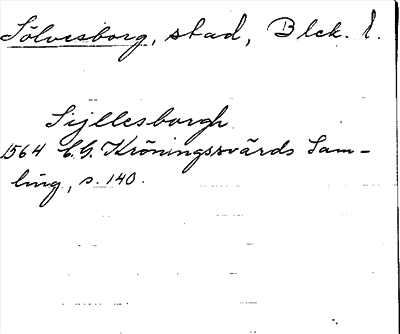 Sölvesborg, stad, Blek. l.
Sijllesborgh
1564 C.G. Kröningssvärds Sam-
ling, s. 140.